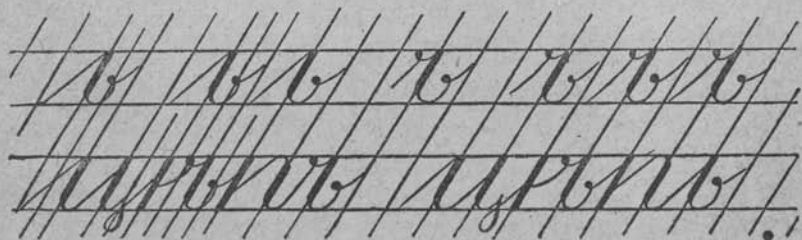 ь ь ь ъ ъ ъ ъ
цѣпъ цѣпь.